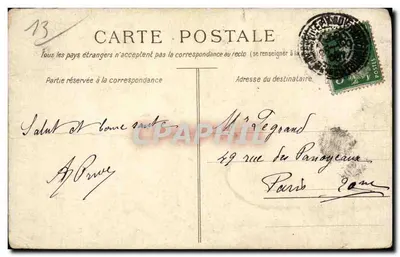 13
CARTE POSTALE
Tous les pays étrangers n'acceptent pas la correspondance au recto (se renseigner à la
Partie réservée à la correspondance
Adresse du destinataire
Salut et bonne santé
Mr Pegrand
49 rue des Panoyeaux
Paris 20me
CPAPHIL